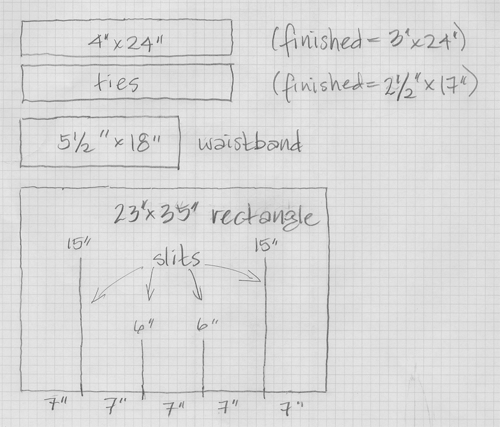 4" x 24" (finished = 3" x 24")
ties (finished = 2 1/2" x 17")
5 1/2" x 18" waistband
23" x 35" rectangle
15" slits 15"
6" 6"
7" 7" 7" 7" 7"